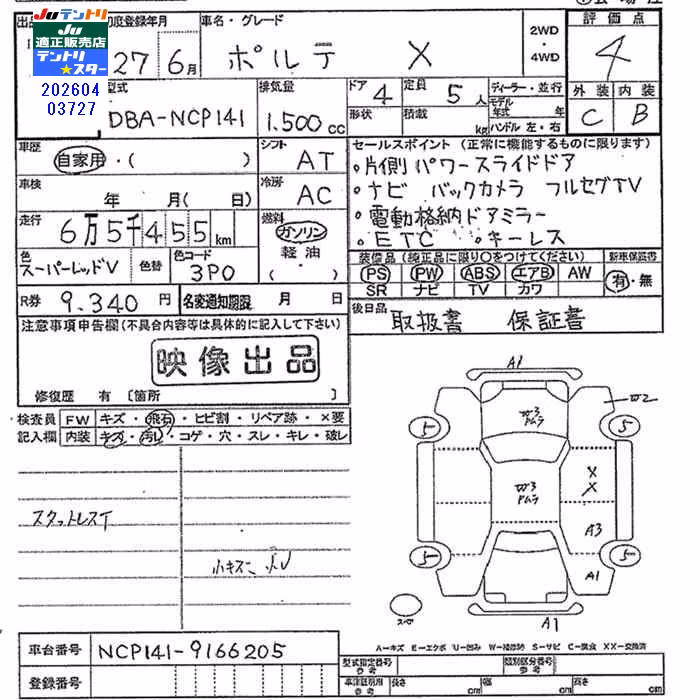 Juテントリ
Ju
適正販売店
テントリ
★スター
202604
03727
初度登録年月
27 6月
車名・グレード
ポルテ X
2WD・4WD
評価点
4
外装 内装
C B
型式
DBA-NCP141
排気量
1.500 cc
ドア 4
定員 5 人
形状
積載 kg
ディーラー・並行
モデル年式 年
ハンドル 左・右
車歴
自家用・( )
シフト AT
冷房 AC
車検 年 月( 日)
走行 6万5千455 km
燃料
ガソリン
軽油
( ・ )
色 スーパーレッドV
色替
色コード 3P0
R券 9.340 円
名変通知期限 月 日
セールスポイント (正常に機能するものに限ります)
・片側パワースライドドア
・ナビ バックカメラ フルセグTV
・電動格納ドアミラー
・ETC ・キーレス
装備品 (純正品に限り○をつけてください)
PS PW ABS エアB AW
SR ナビ TV カワ
新車保証書
有・無
後日品 取扱書 保証書
注意事項申告欄(不具合内容等は具体的に記入して下さい)
映像出品
修復歴 有 [箇所 ]
検査員記入欄
FW キズ・飛石・ヒビ割・リペア跡・×要
内装 キズ・汚レ・コゲ・穴・スレ・キレ・破レ
スタットレスT
小キズ
A1
5 5
5 5
ムラ
ムラ
X
X
A3
A1
A1
スペア
車台番号 NCP141-9166205
登録番号
A-キズ E-エクボ U-凹み W-補修跡 S-サビ C-腐食 XX-交換済
型式指定番号 参考
類別区分番号 参考
車庫証明用 参考 長さ cm 幅 cm 高さ cm